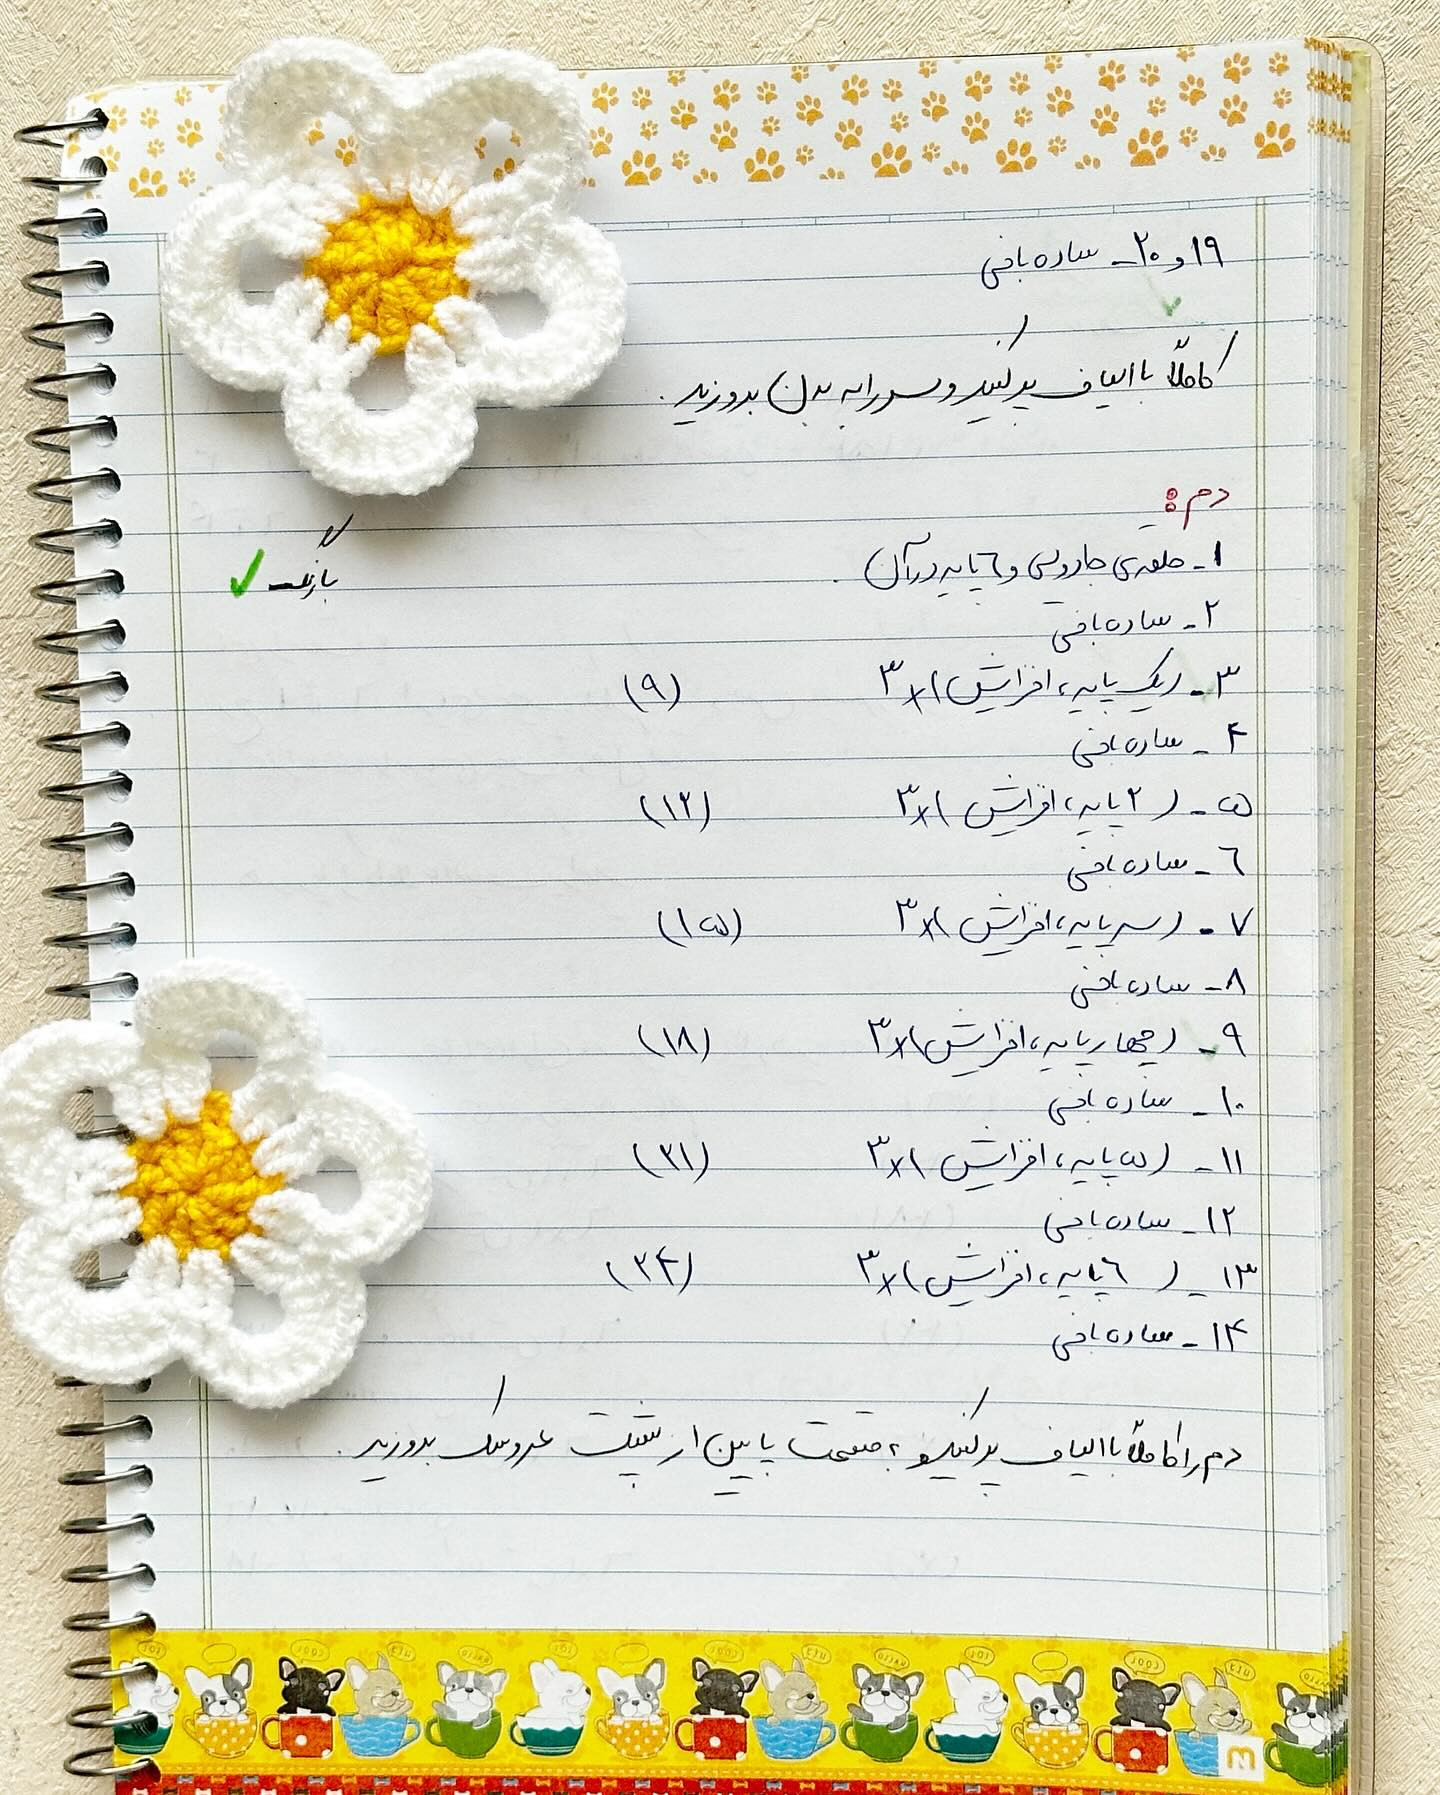 ۱۹ و ۲۰ـ ساده بافی
کاملاً با الیاف پر کنید و سر را به بدن بدوزید.
دم:
۱ـ حلقه‌ی جادویی و ۶ پایه در آن.
۲ـ ساده بافی
۳ـ (یک پایه، افزایش)×۳ (۹)
۴ـ ساده بافی
۵ـ (۲ پایه، افزایش)×۳ (۱۲)
۶ـ ساده بافی
۷ـ (سه پایه، افزایش)×۳ (۱۵)
۸ـ ساده بافی
۹ـ (چهار پایه، افزایش)×۳ (۱۸)
۱۰ـ ساده بافی
۱۱ـ (۵ پایه، افزایش)×۳ (۲۱)
۱۲ـ ساده بافی
۱۳ـ (۶ پایه، افزایش)×۳ (۲۴)
۱۴ـ ساده بافی
دم را کاملاً با الیاف پر کنید و به قسمت پایین از پشت عروسک بدوزید.